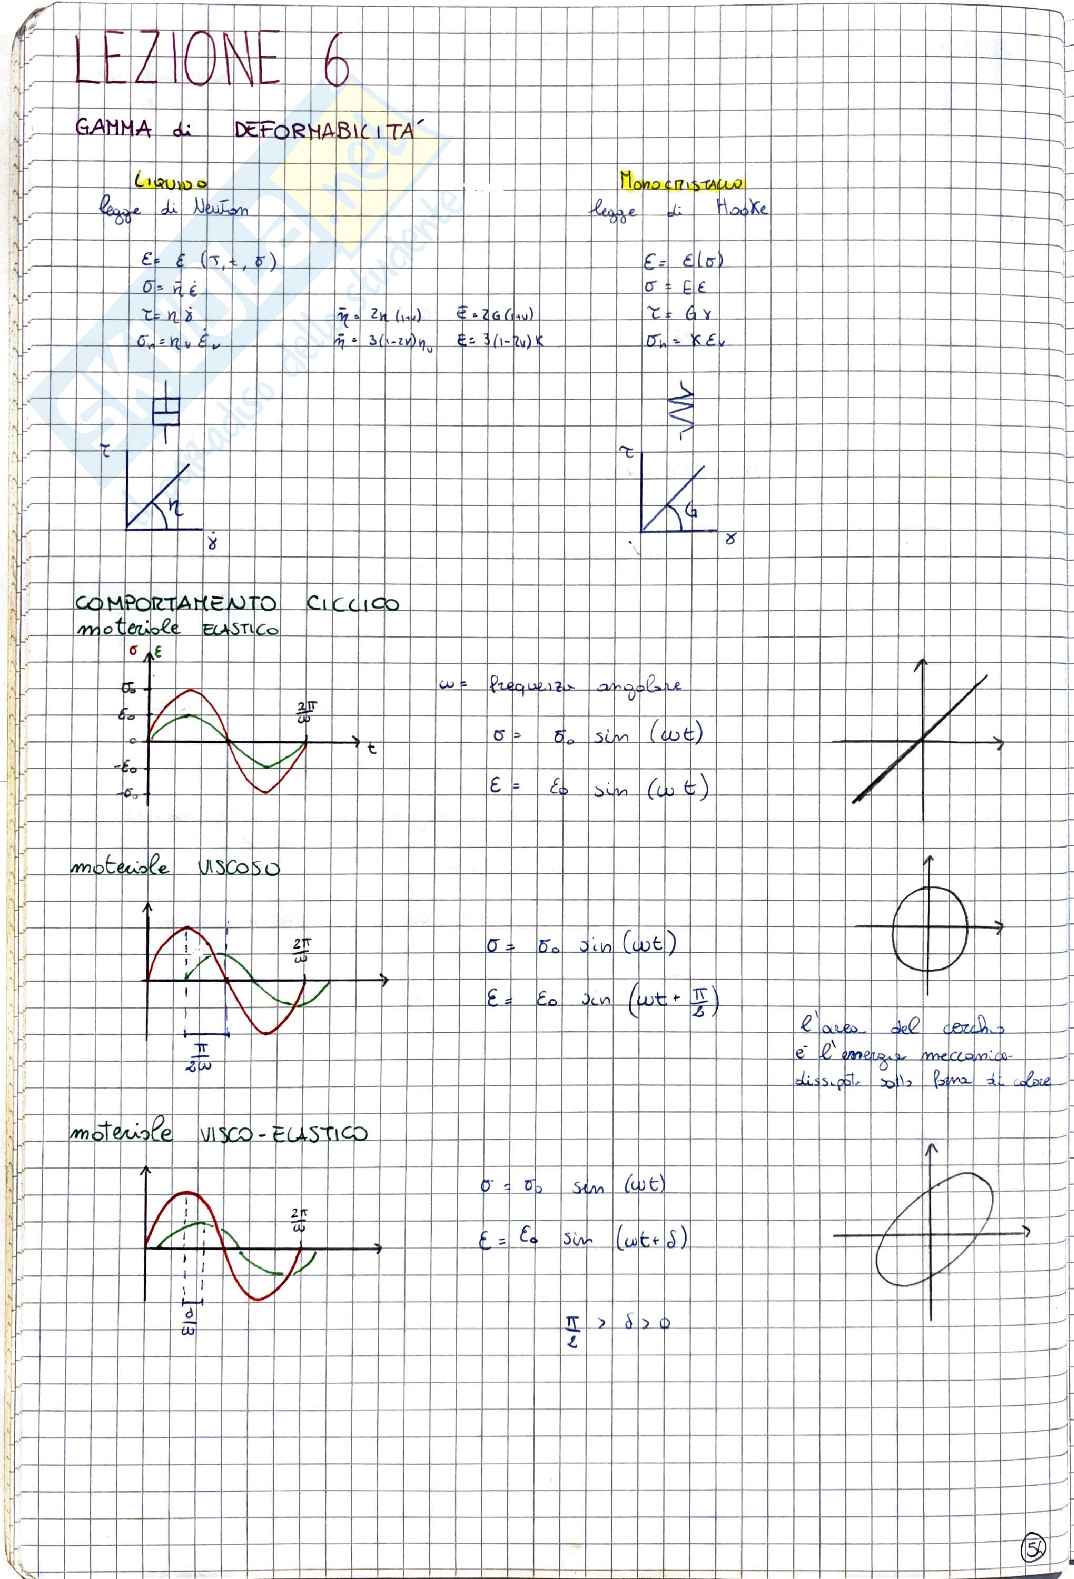 LEZIONE 6
GAMMA di DEFORMABILITÀ
LIQUIDO
legge di Newton
ε = ε (T, t, σ)
σ = η̄ ε̇
τ = η γ̇
σₕ = ηᵥ ε̇ᵥ
η̄ = 2η (1+ν) E = 2G (1+ν)
η̄ = 3(1-2ν) ηᵥ E = 3(1-2ν) K
MONOCRISTALLO
legge di Hooke
ε = ε(σ)
σ = E ε
τ = G γ
σₕ = K εᵥ
τ
η
γ̇
τ
G
γ
COMPORTAMENTO CICLICO
materiale ELASTICO
σ ε
σ₀
ε₀
0
-ε₀
-σ₀
2π/ω
t
ω = frequenza angolare
σ = σ₀ sin (ωt)
ε = ε₀ sin (ωt)
materiale VISCOSO
2π/ω
π/2ω
σ = σ₀ sin (ωt)
ε = ε₀ sin (ωt + π/2)
l'area del cerchio
è l'energia meccanica
dissipata sotto forma di calore
materiale VISCO-ELASTICO
2π/ω
δ/ω
σ = σ₀ sen (ωt)
ε = ε₀ sin (ωt + δ)
π/2 > δ > 0
SKUOLA.net
paradiso dello studente